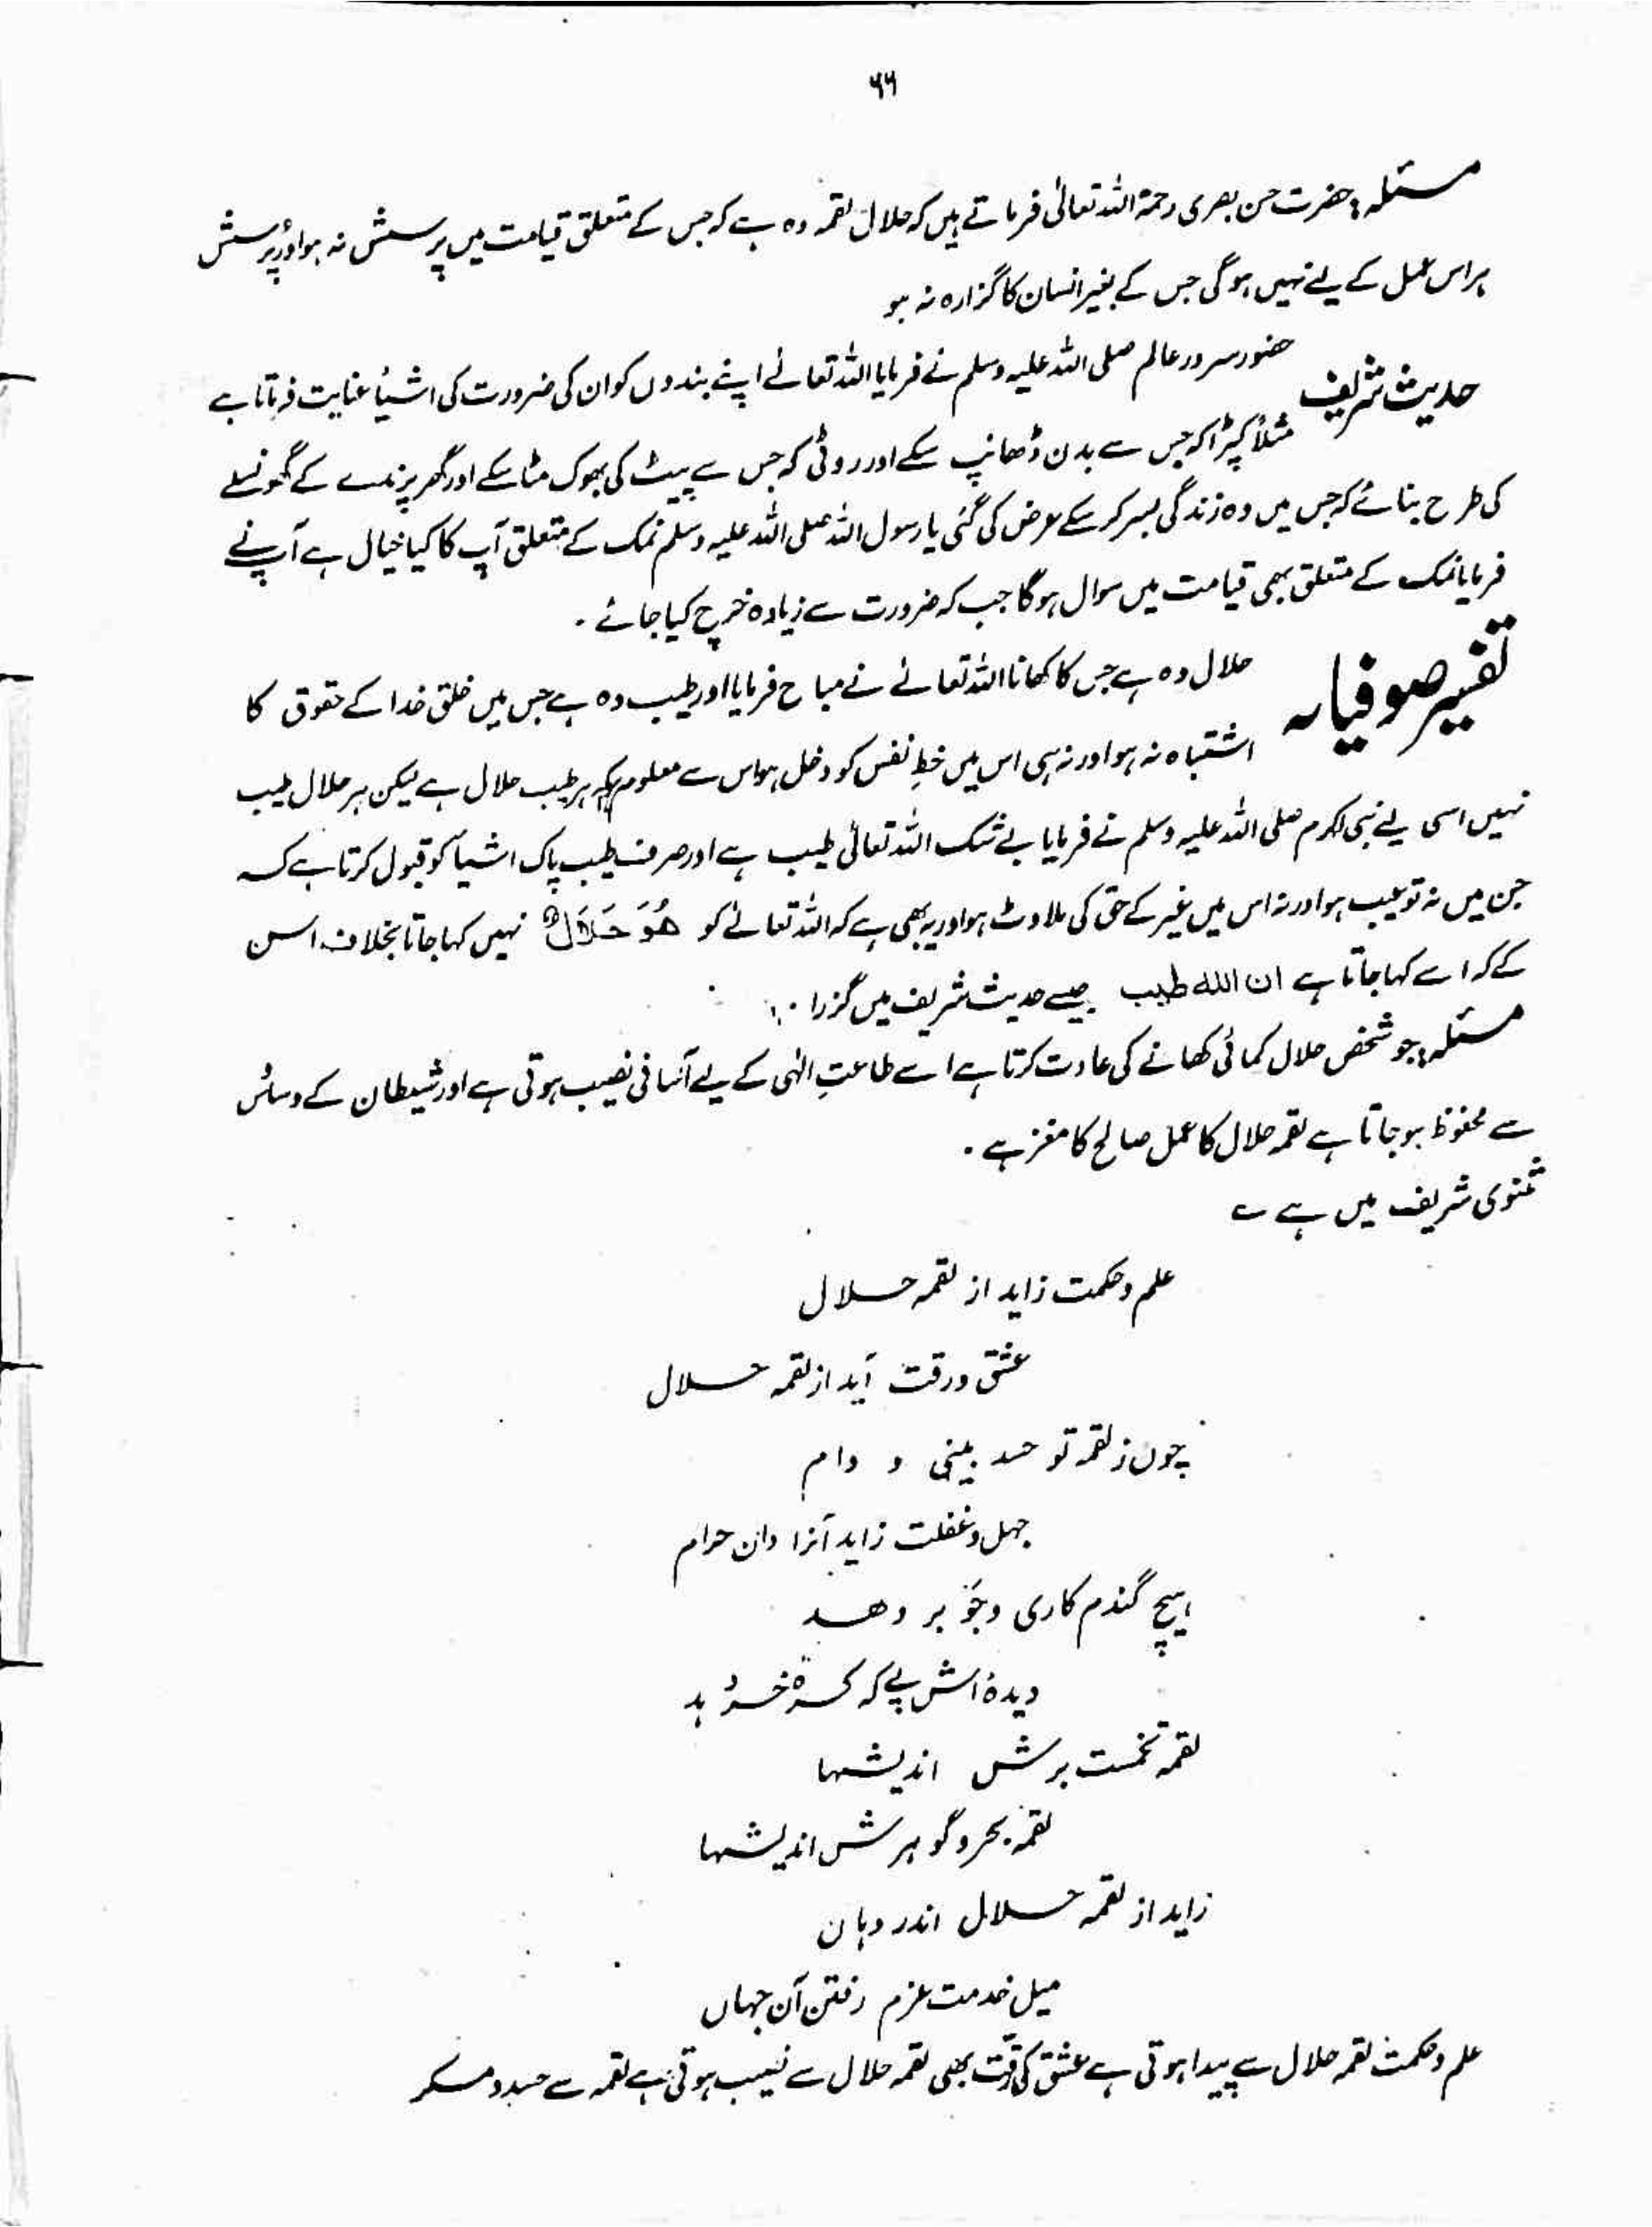 ۶۶
مسئلہ: حضرت حسن بصری رحمۃ اللہ تعالیٰ فرماتے ہیں کہ حلال لقمہ وہ ہے کہ جس کے متعلق قیامت میں پرسش نہ ہو اور پرسش
ہر اس عمل کے لیے نہیں ہوگی جس کے بغیر انسان کا گزارہ نہ ہو
حدیث شریف حضور سرور عالم صلی اللہ علیہ وسلم نے فرمایا اللہ تعالےٰ اپنے بندوں کو ان کی ضرورت کی اشیأ عنایت فرماتا ہے
مثلاً کپڑا کہ جس سے بدن ڈھانپ سکے اور روٹی کہ جس سے پیٹ کی بھوک مٹا سکے اور گھر پرندے کے گھونسلے
کی طرح بنائے کہ جس میں وہ زندگی بسر کر سکے عرض کی گئی یا رسول اللہ صلی اللہ علیہ وسلم نمک کے متعلق آپ کا کیا خیال ہے آپ نے
فرمایا نمک کے متعلق بھی قیامت میں سوال ہوگا جب کہ ضرورت سے زیادہ خرچ کیا جائے ۔
تفسیر صوفیانہ حلال وہ ہے جس کا کھانا اللہ تعالےٰ نے مباح فرمایا اور طیب وہ ہے جس میں خلق خدا کے حقوق کا
اشتباہ نہ ہو اور نہ ہی اس میں خطِ نفس کو دخل ہو اس سے معلوم ہوا کہ ہر طیب حلال ہے لیکن ہر حلال طیب
نہیں اسی لیے نبی اکرم صلی اللہ علیہ وسلم نے فرمایا بے شک اللہ تعالیٰ طیب ہے اور صرف طیب پاک اشیأ کو قبول کرتا ہے کہ
جن میں نہ تو عیب ہو اور نہ اس میں غیر کے حق کی ملاوٹ ہو اور یہ بھی ہے کہ اللہ تعالےٰ کو هُوَ حَلَالٌ نہیں کہا جاتا بخلاف اس
کے کہ اسے کہا جاتا ہے ان اللہ طیب جیسے حدیث شریف میں گزرا ۔
مسئلہ: جو شخص حلال کمائی کھانے کی عادت کرتا ہے اسے طاعتِ الٰہی کے لیے آسانی نصیب ہوتی ہے اور شیطان کے وساوس
سے محفوظ ہو جاتا ہے لقمہ حلال کا عمل صالح کا مغز ہے ۔
مثنوی شریف میں ہے ؎
علم و حکمت زاید از لقمہ حلال
عشق و رقت آید از لقمہ حلال
چون ز لقمہ تو حسد بینی و دام
جہل و غفلت زاید آنرا دان حرام
ہیچ گندم کاری و جَو بر دھد
دیدۂ اسپے کہ کرہ خر دہد
لقمہ تخمست برش اندیشہا
لقمہ بحر و گوہرش اندیشہا
زاید از لقمہ حلال اندر دہان
میل خدمت عزم رفتن آن جہاں
علم و حکمت لقمہ حلال سے پیدا ہوتی ہے عشق کی رقّت بھی لقمہ حلال سے نصیب ہوتی ہے لقمہ سے حسد و مکر